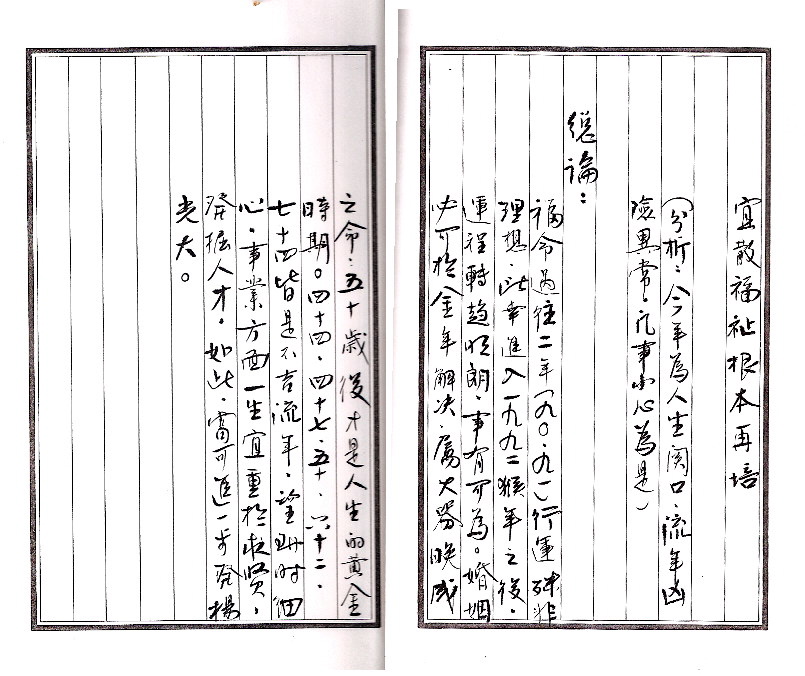 宜散福祉根本再培
(分析：今年為人生関口，流年凶
險異常，凡事小心為是)
総論：
福命過往二年(九〇、九一)行運殊非
理想，此幸進入一九九二猴年之後，
運程轉趨明朗，事有可為。婚姻
必可於金年解決，屬大器晚成
之命；五十歲後才是人生的黃金
時期。四十四、四十七、五十、六十二、
七十四皆是不吉流年，望助时細
心。事業方面一生宜重於求賢，
發掘人才，如此，當可進一步發揚
光大。